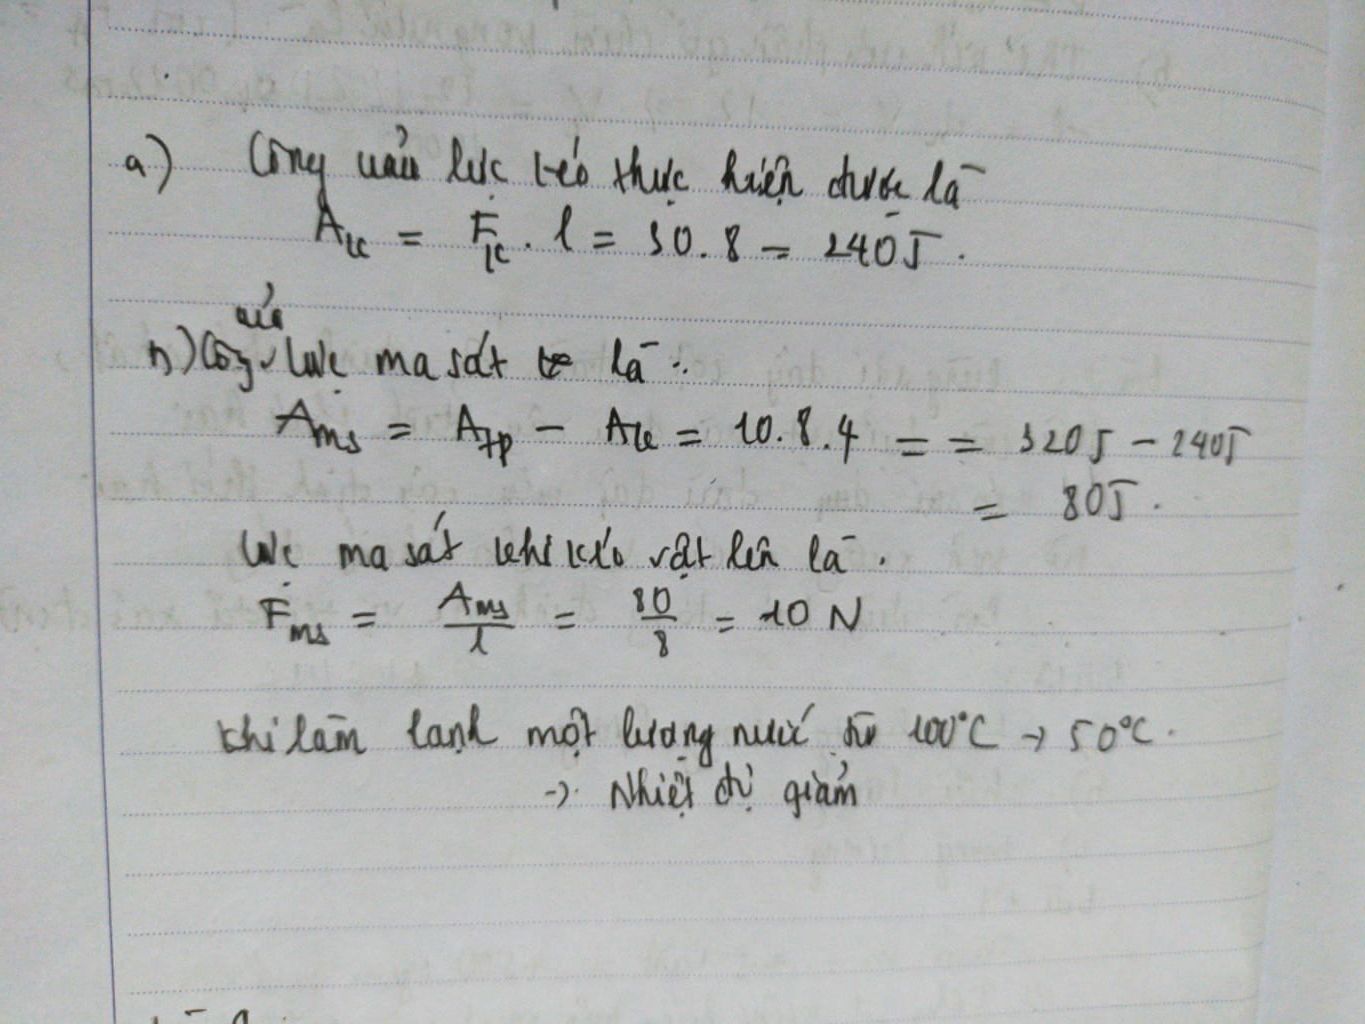 a) Công của lực kéo thực hiện được là
A_k = F_k . l = 30.8 = 240J.
của
b) Công lực ma sát là:
A_ms = A_tp - A_k = 10.8.4 = = 320J - 240J
= 80J.
Lực ma sát khi kéo vật lên là.
F_ms = A_ms/l = 80/8 = 10 N
Khi làm lạnh một lượng nước từ 100°C → 50°C.
→ Nhiệt độ giảm